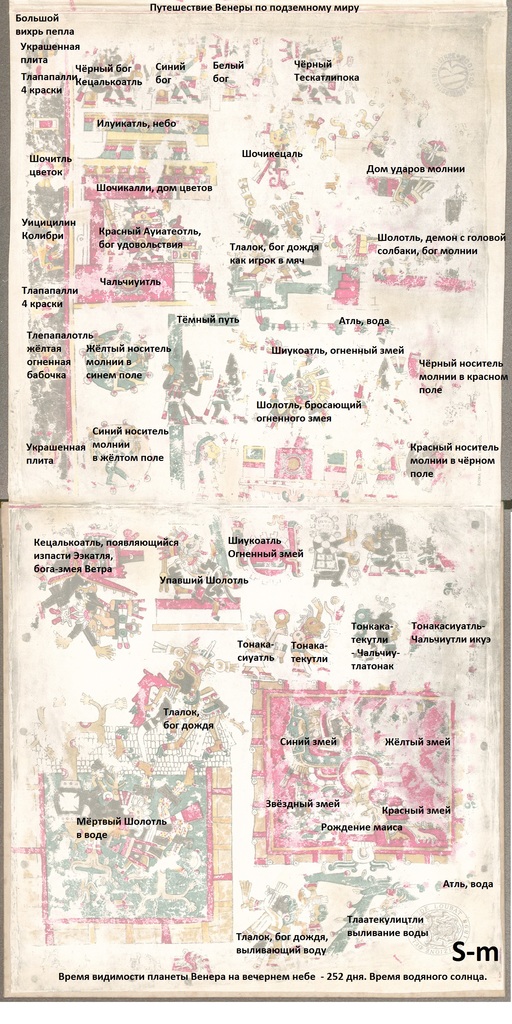 Путешествие Венеры по подземному миру
Большой
вихрь пепла
Украшенная
плита
Тлапапалли
4 краски
Чёрный бог
Кецалькоатль
Синий
бог
Белый
бог
Чёрный
Тескатлипока
Илуикатль, небо
Шочикецаль
Дом ударов молнии
Шочитль
цветок
Шочикалли, дом цветов
Уицицилин
Колибри
Красный Ауиатеотль,
бог удовольствия
Тлалок, бог дождя
как игрок в мяч
Шолотль, демон с головой
собаки, бог молнии
Чальчиуитль
Тлапапалли
4 краски
Тёмный путь
Атль, вода
Тлепапалотль
жёлтая
огненная
бабочка
Жёлтый носитель
молнии в
синем поле
Шиукоатль, огненный змей
Чёрный носитель
молнии в красном
поле
Шолотль, бросающий
огненного змея
Украшенная
плита
Синий носитель
молнии
в жёлтом поле
Красный носитель
молнии в чёрном
поле
Кецалькоатль, появляющийся
изпасти Ээкатля,
бога-змея Ветра
Шиукоатль
Огненный змей
Упавший Шолотль
Тонака-
сиуатль
Тонака-
текутли
Тонкака-
текутли
- Чальчиу-
тлатонак
Тонакасиуатль-
Чальчиутли икуэ
Тлалок,
бог дождя
Синий змей
Жёлтый змей
Звёздный змей
Красный змей
Рождение маиса
Мёртвый Шолотль
в воде
Атль, вода
Тлаатекулицтли
выливание воды
Тлалок, бог дождя,
выливающий воду
S-m
Время видимости планеты Венера на вечернем небе - 252 дня. Время водяного солнца.